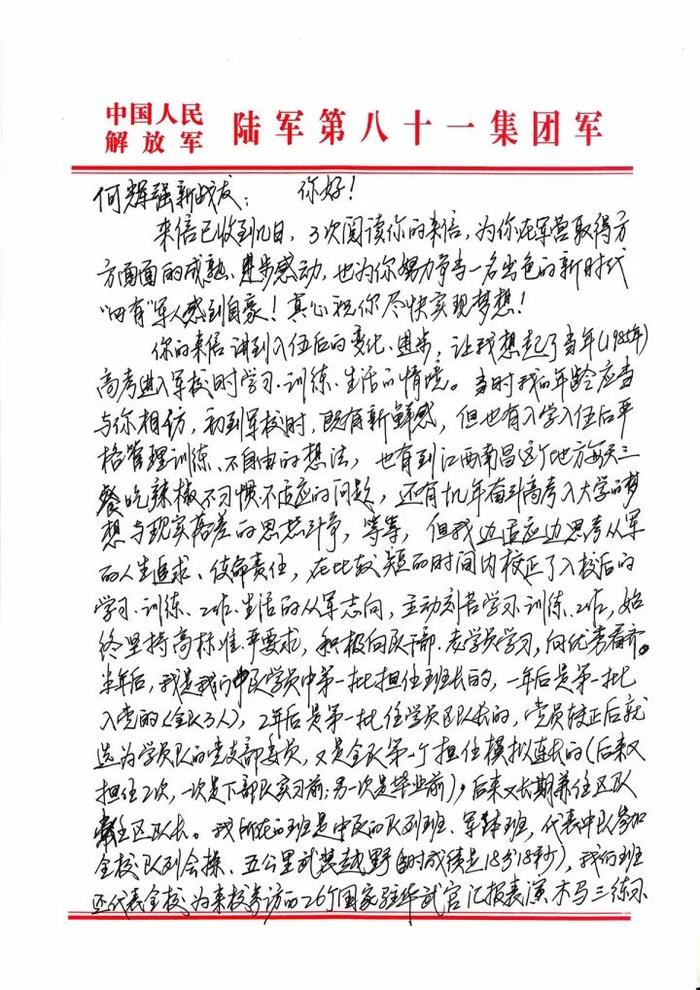 中国人民
解放军
陆军第八十一集团军
何辉强新战友： 你好！
来信已收到几日，3次阅读你的来信，为你在军营取得方
方面面的成熟、进步感动，也为你努力争当一名出色的新时代
“四有”军人感到自豪！真心祝你尽快实现梦想！
你的来信讲到入伍后的变化、进步，让我想起了当年(1985年)
高考进入军校时学习、训练、生活的情境。当时我的年龄应当
与你相仿，初到军校时，既有新鲜感，但也有入学入伍后严
格管理训练、不自由的想法，也有到江西南昌这个地方每天三
餐吃辣椒不习惯不适应的问题，还有几年奋斗高考入大学的梦
想与现实落差的思想斗争，等等，但我边适应边思考从军
的人生追求、使命责任，在比较短的时间内校正了入校后的
学习、训练、工作、生活的从军志向，主动刻苦学习、训练、工作，始
终坚持高标准严要求，积极向队干部、老学员学习，向优秀看齐。
半年后，我是我们中队学员中第一批担任班长的，一年后是第一批
入党的(全队3人)，2年后是第一批任学员区队长的，党员转正后就
选为学员队的党支部委员，又是全队第一个担任模拟连长的(后来又
担任2次，一次是下部队实习前；另一次是毕业前)，后来又长期兼任区队
任区队长。我所在的班是中队的队列班、军体班，代表中队参加
全校队列会操、五公里武装越野(当时成绩是18分18秒)，我们班
还代表全校为来校参访的26个国家驻华武官汇报表演木马三练习